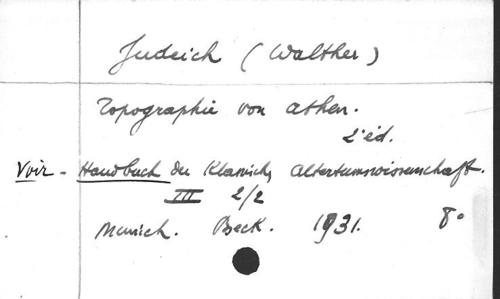 Judeich (Walther)
Topographie von Athen.
2e éd.
Voir - Handbuch der Klassisch, Altertumswissenschaft.
III 2/2
Munich. Beck. 1931. 8o